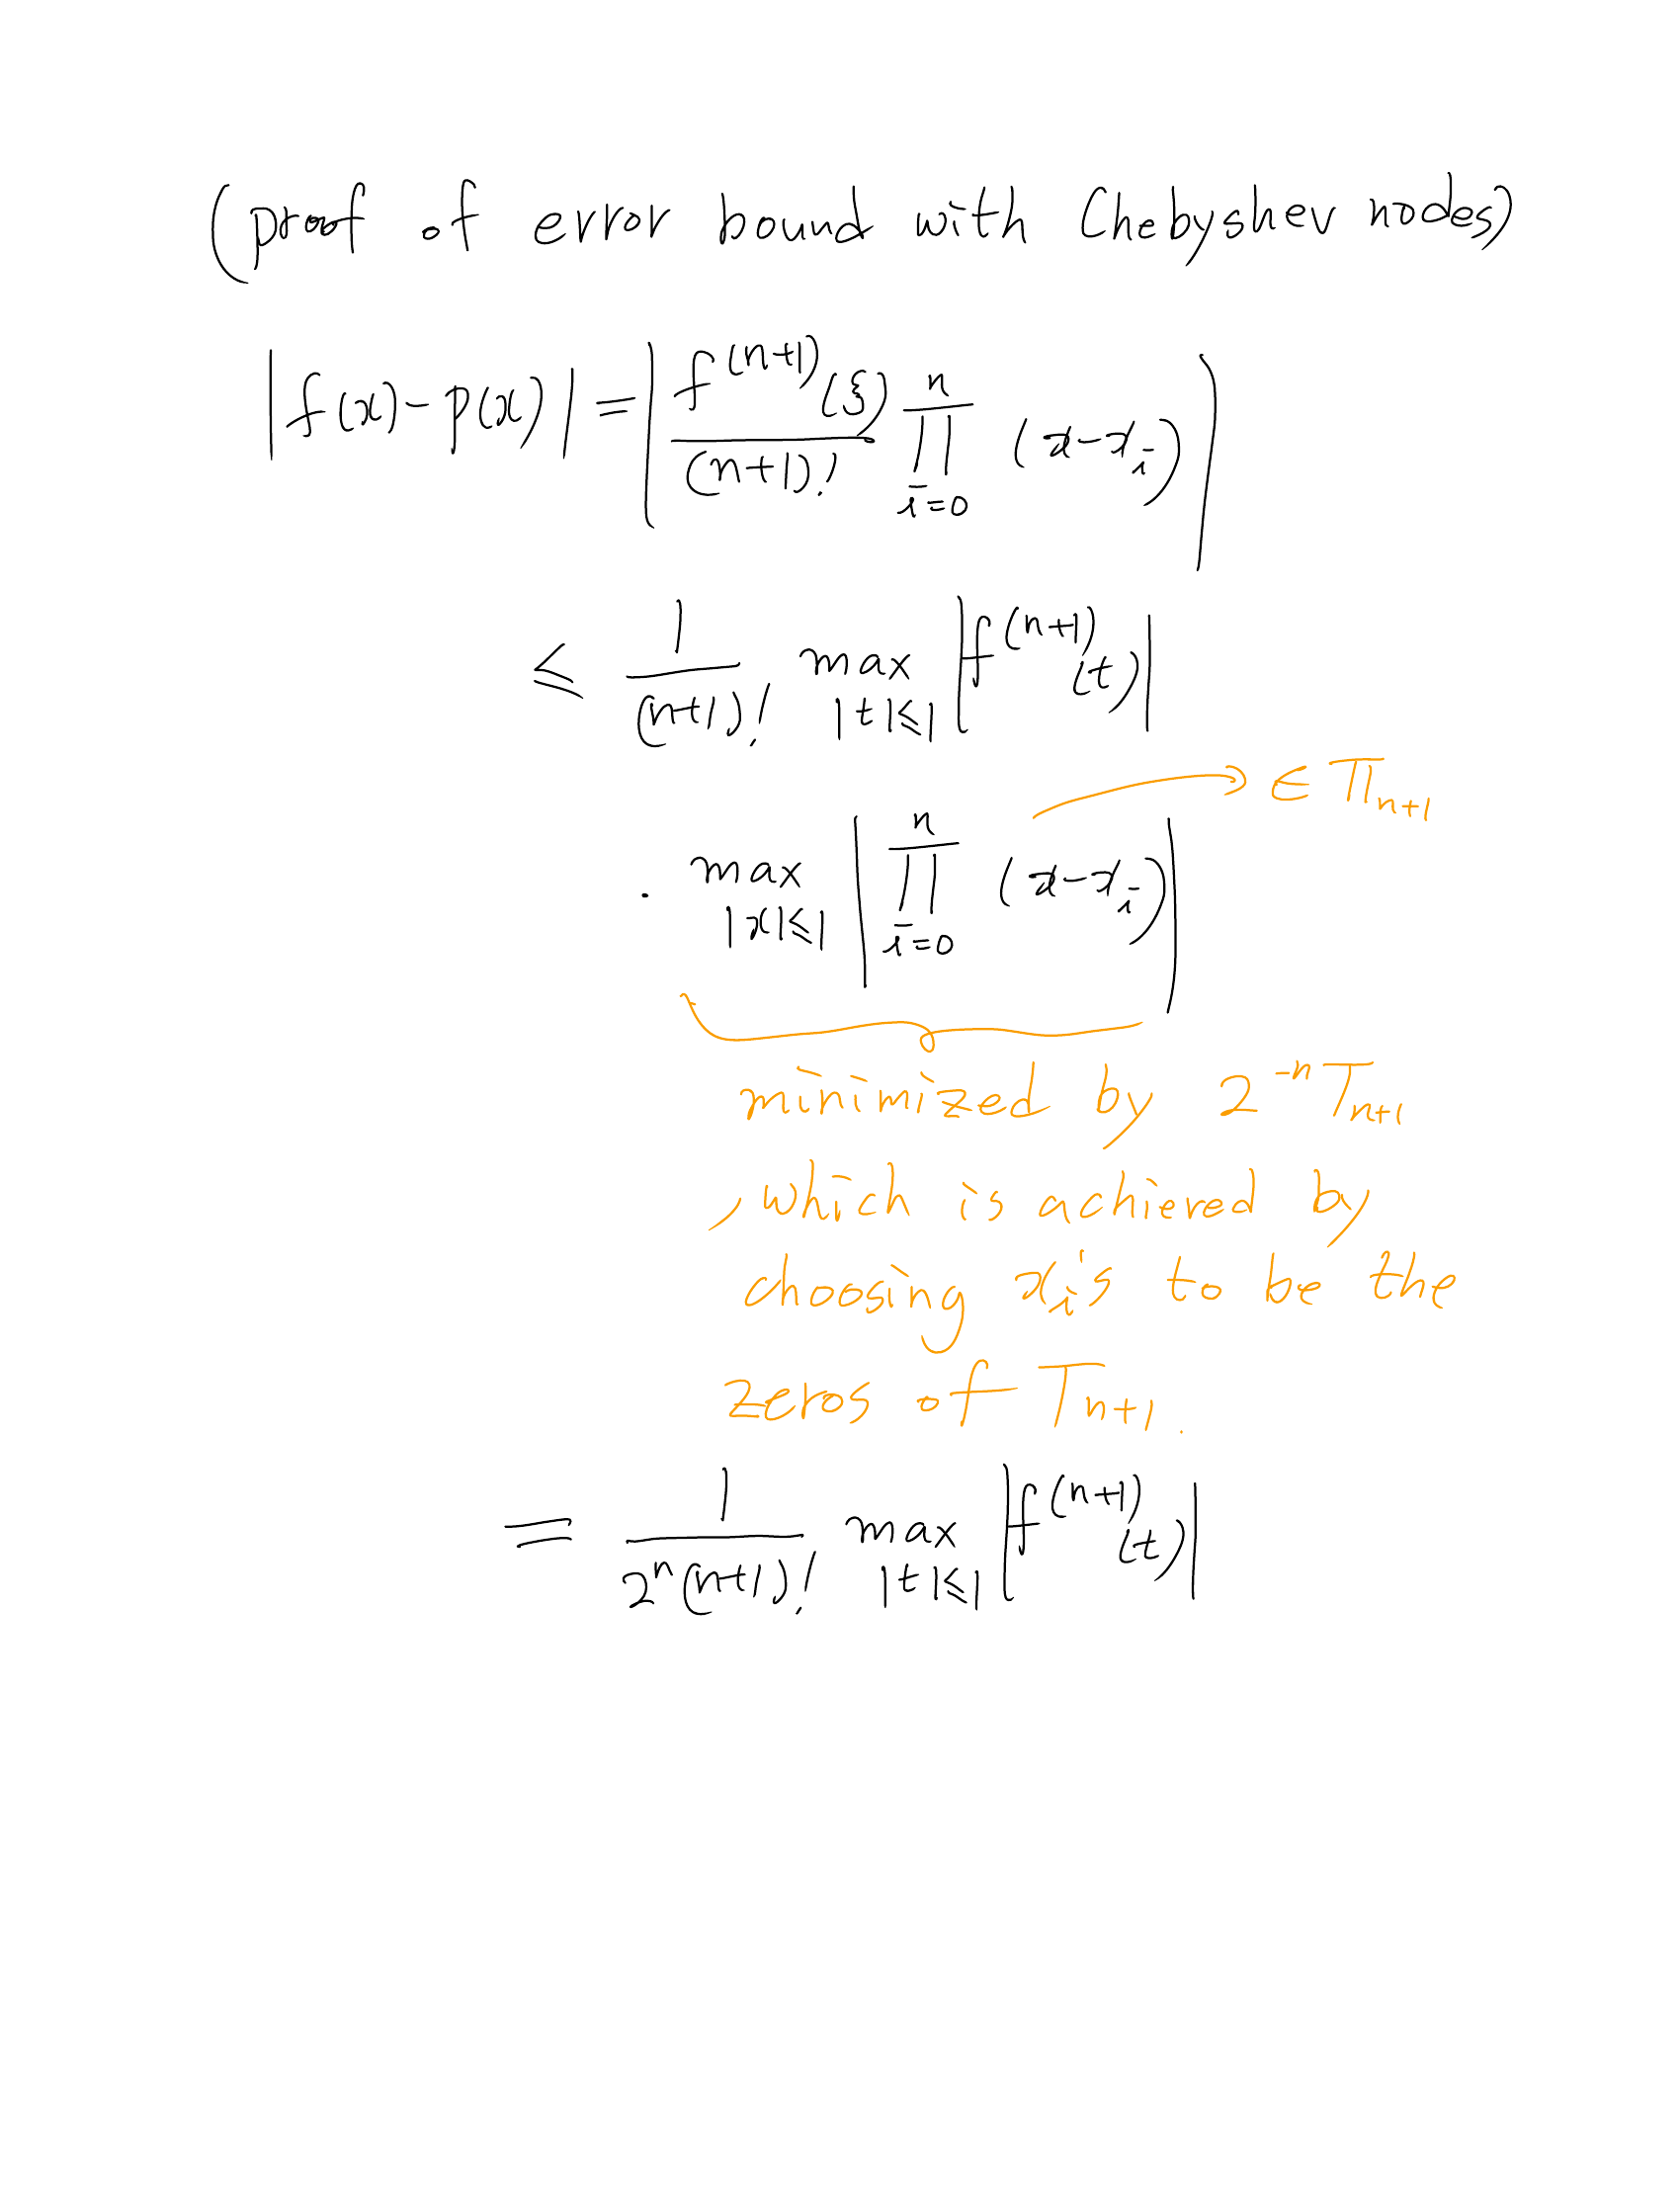 (proof of error bound with Chebyshev nodes)
|f(x)-p(x)| = | f^{(n+1)}(ξ) / (n+1)! ∏_{i=0}^{n} (x-x_i) |
≤ 1/(n+1)! max_{|t|≤1} |f^{(n+1)}(t)|
→ ∈ Π_{n+1}
· max_{|x|≤1} | ∏_{i=0}^{n} (x-x_i) |
minimized by 2^{-n} T_{n+1}
, which is achieved by
choosing x_i's to be the
zeros of T_{n+1}.
= 1/(2^n (n+1)!) max_{|t|≤1} |f^{(n+1)}(t)|